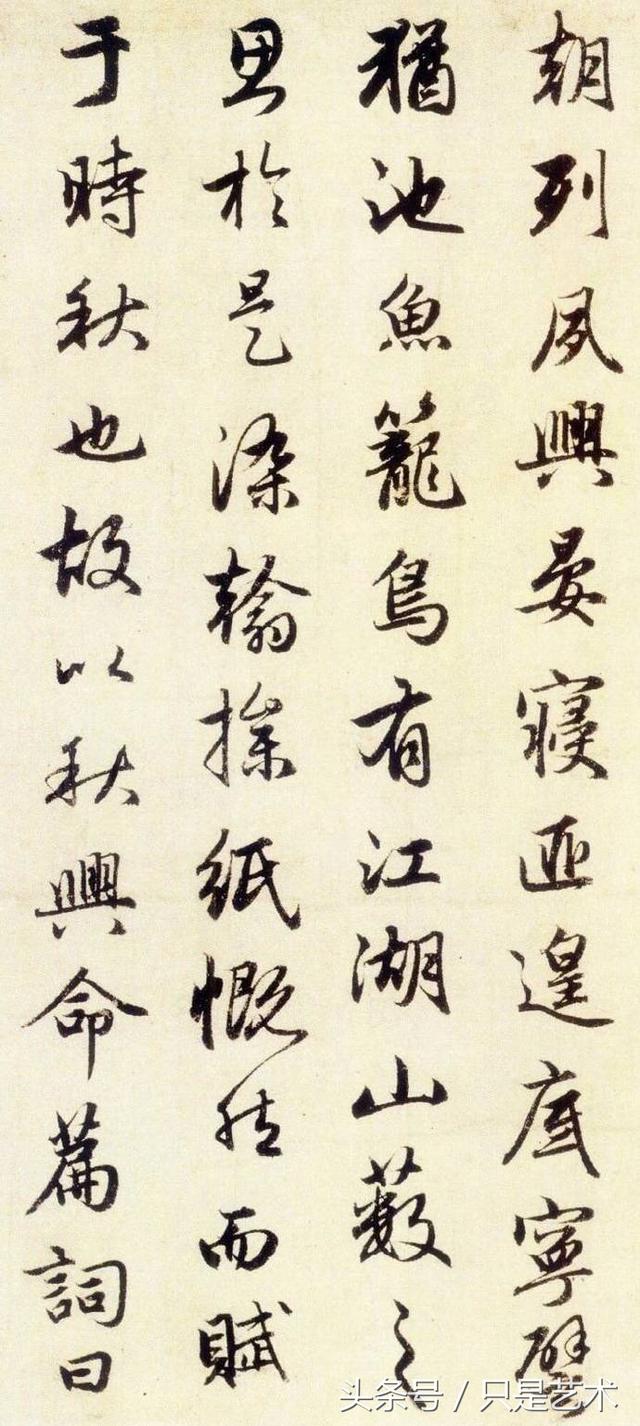 朝列夙興晏寢匪遑底寧譬
猶池魚籠鳥有江湖山藪之
思於是染翰操紙慨然而賦
于時秋也故以秋興命篇詞曰
头条号 / 只是艺术